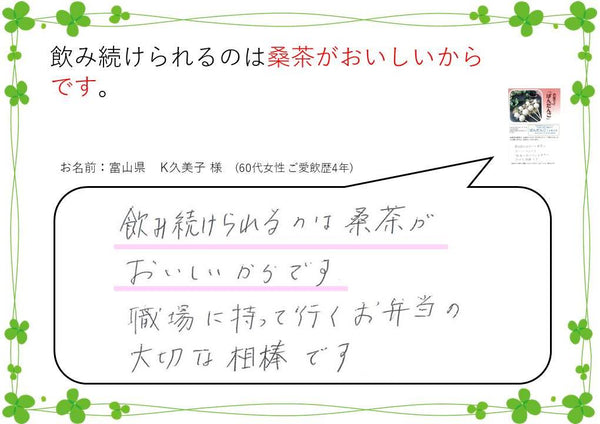 飲み続けられるのは桑茶がおいしいから
です。
お名前：富山県　K久美子 様　(60代女性ご愛飲歴4年)
飲み続けられるのは桑茶が
おいしいからです
職場に持って行くお弁当の
大切な相棒です